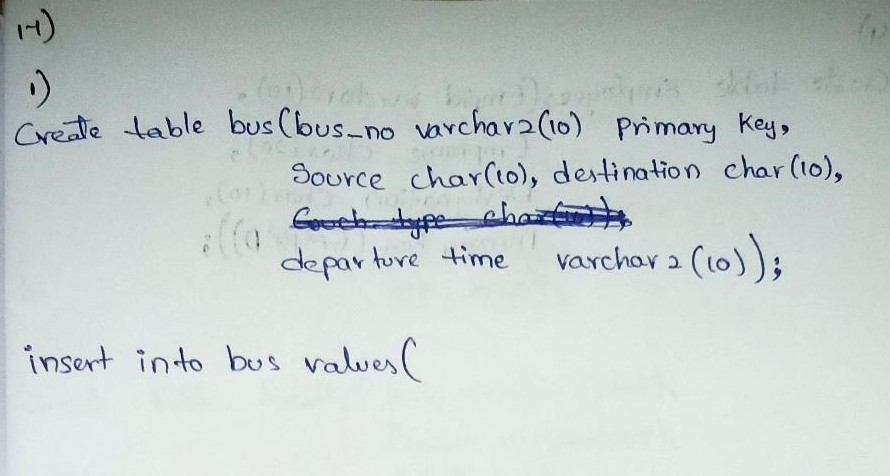 14)
1)
Create table bus(bus_no varchar2(10) Primary Key,
Source char(10), destination char(10),
Couch type char(10),
departure time varchar2(10));
insert into bus values(